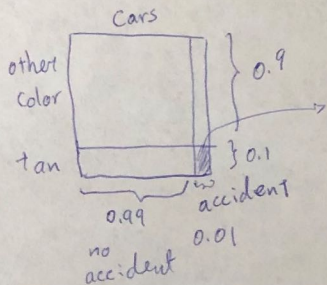 Cars
other
color
0.9
tan
0.1
0.99
accident
0.01
no
accident